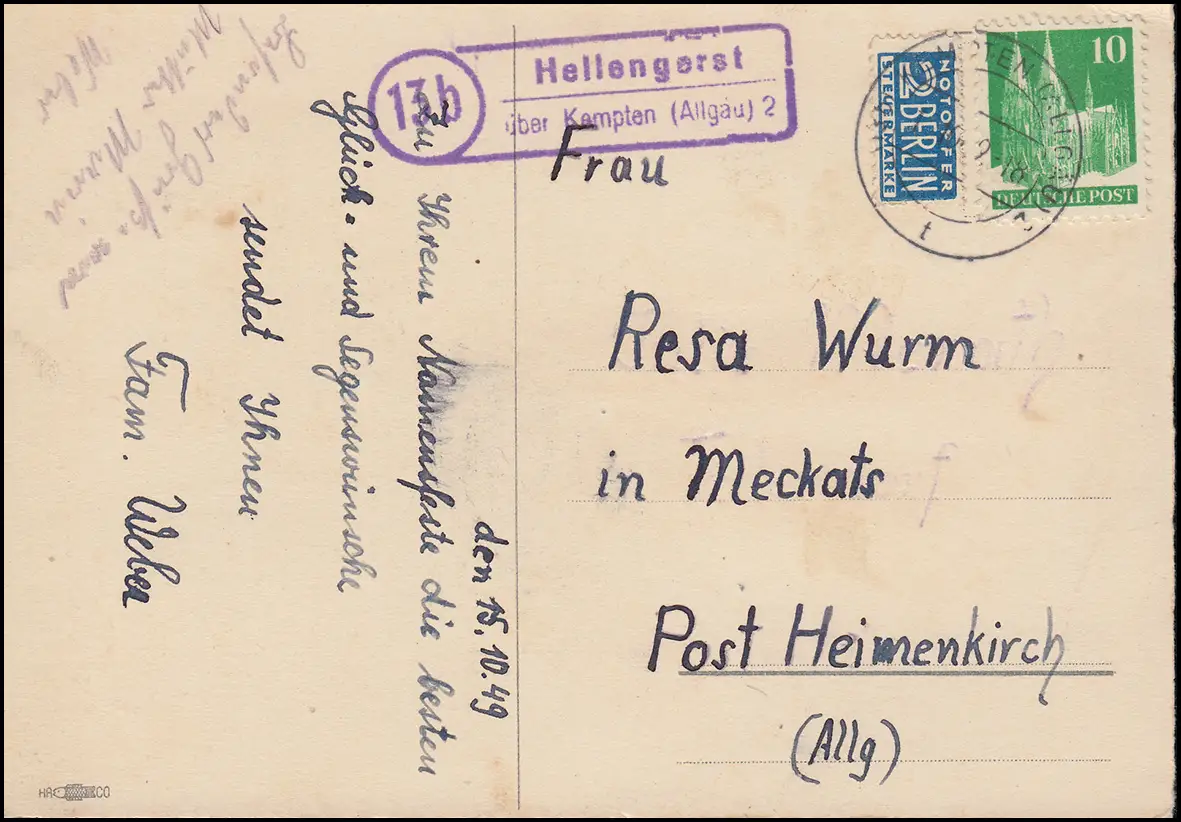 13b
Hellengerst
über Kempten (Allgäu) 2
NOTOPFER
2 BERLIN
STEUERMARKE
10
DEUTSCHE POST
Frau
Resa Wurm
in Meckats
Post Heimenkirch
(Allg)
den 15.10.49
Zu Ihrem Namensfeste die besten
Glück- und Segenswünsche
sendet Ihnen
Fam. Weber
HA CO